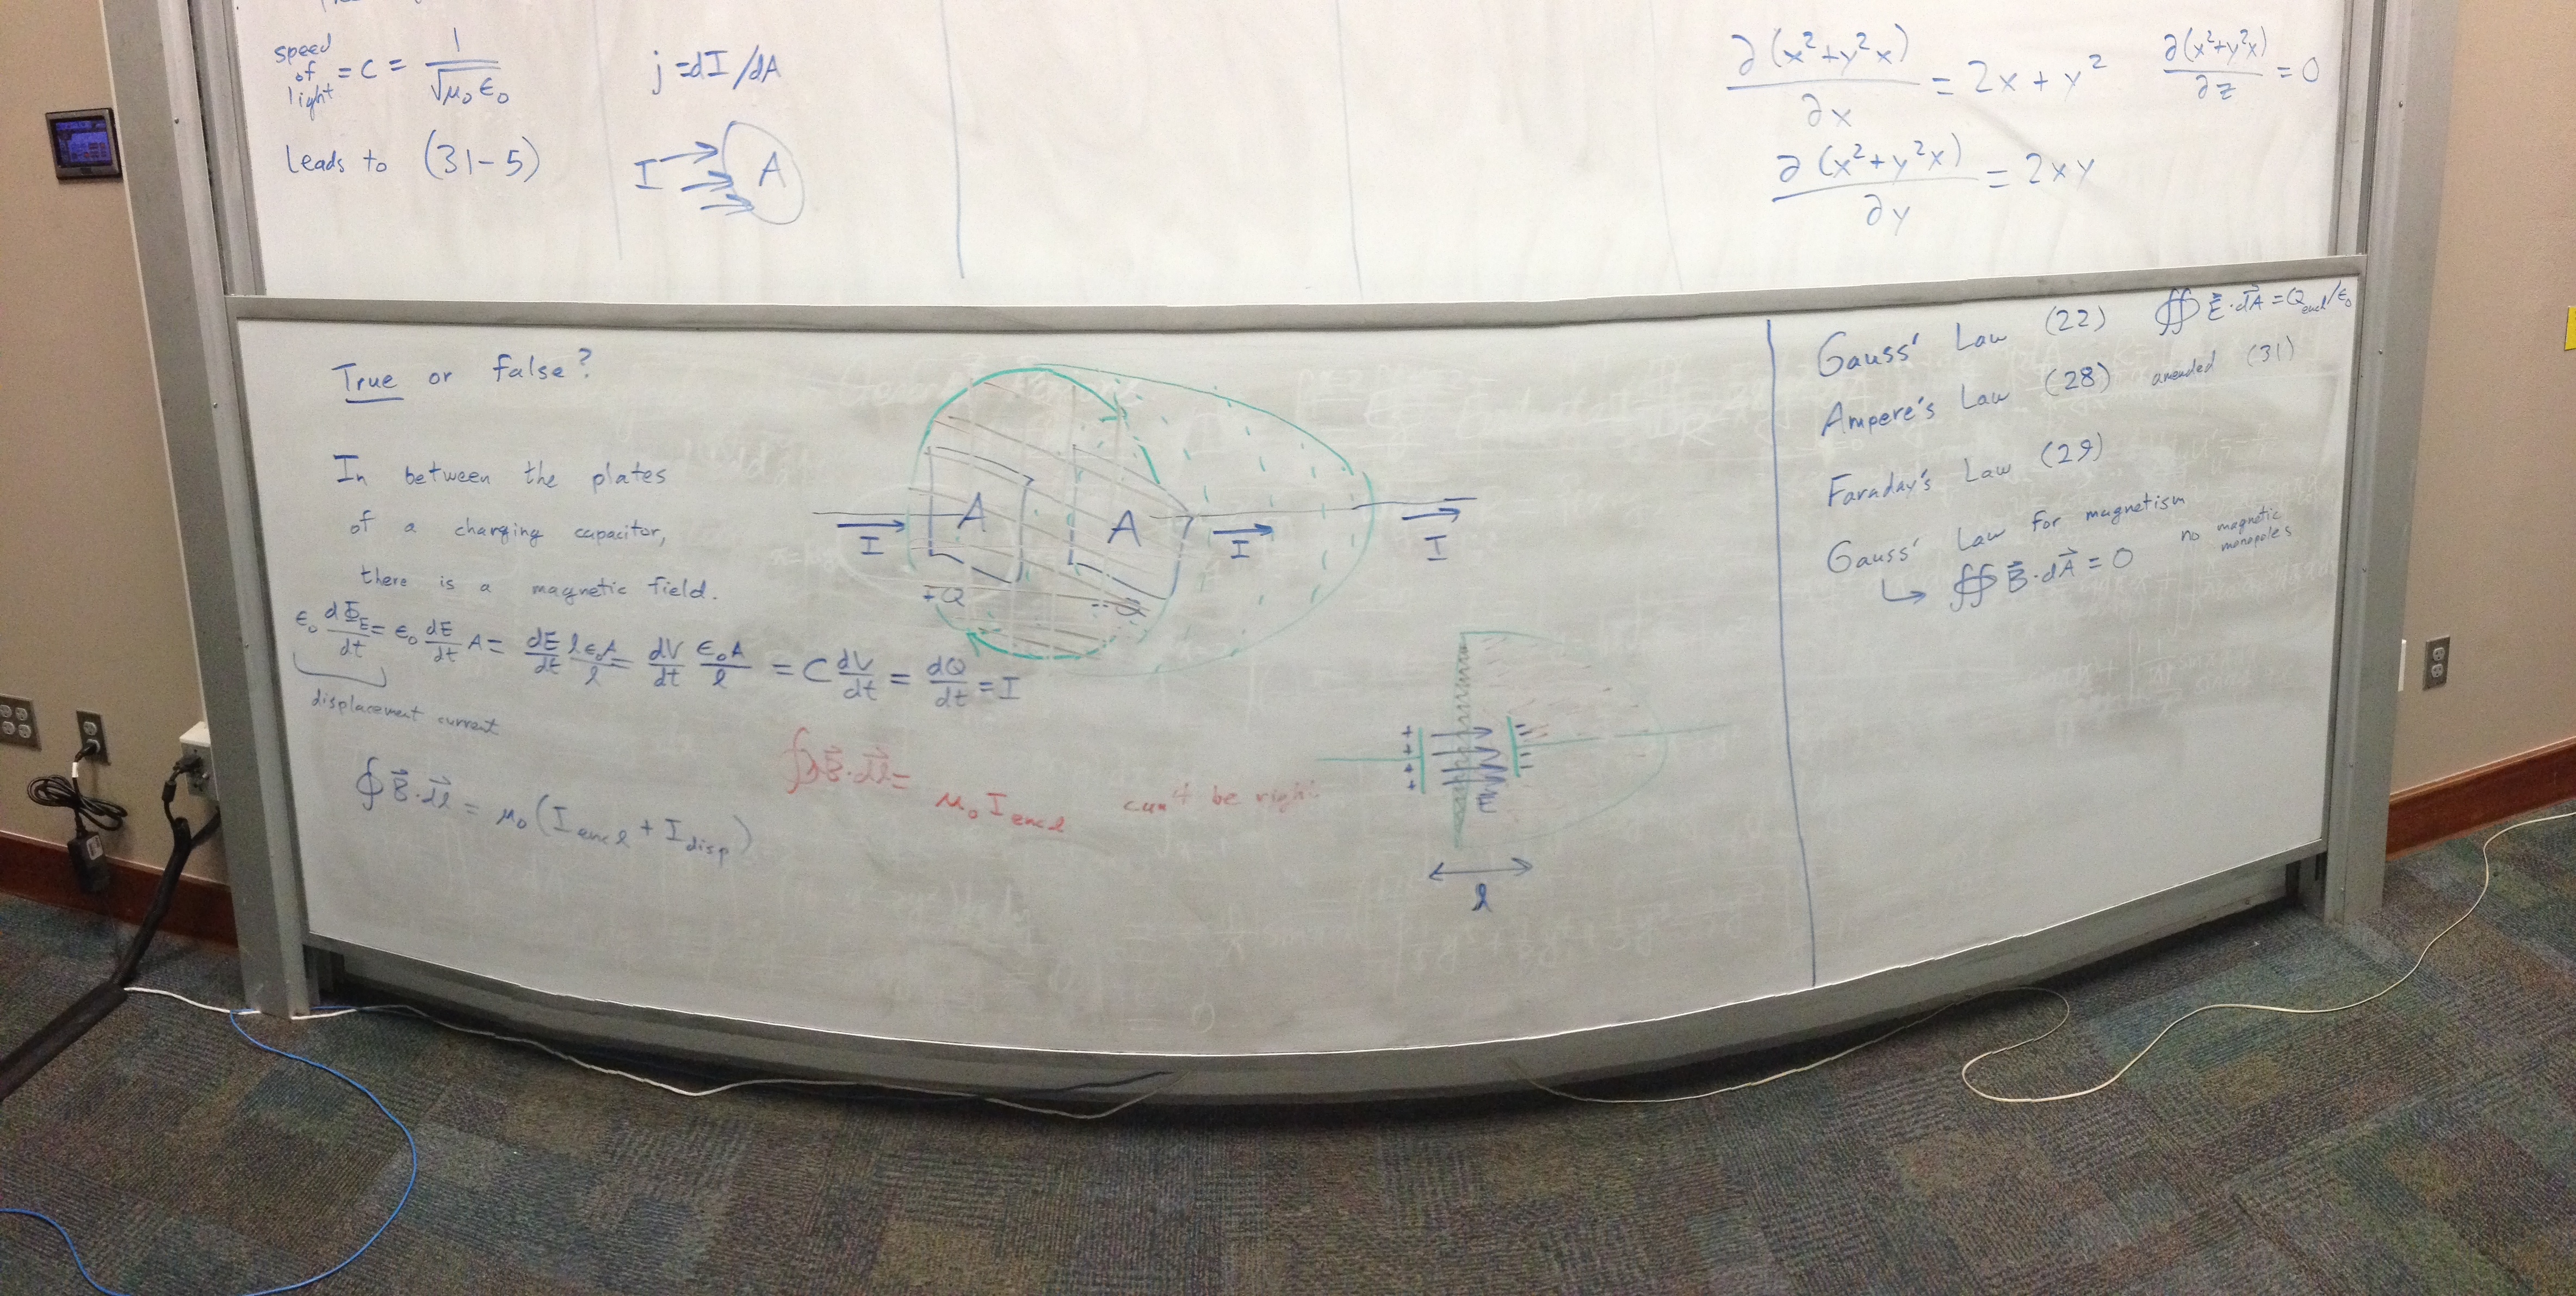 speed of light = c = 1/√μ₀ε₀
leads to (31-5)
j = dI/dA
I A
∂(x²+y²x)/∂x = 2x + y²
∂(x²+y²x)/∂z = 0
∂(x²+y²x)/∂y = 2xy
True or false?
In between the plates
of a charging capacitor,
there is a magnetic field.
ε₀ dΦ_E/dt = ε₀ dE/dt A = dE/dt lε₀A/l = dV/dt ε₀A/l = C dV/dt = dQ/dt = I
displacement current
∮ B⃗·dl⃗ = μ₀(I_encl + I_disp)
I A A I I
+Q -Q
∮ B⃗·dl⃗ = μ₀ I_encl can't be right
+ + + +
E
l
Gauss' Law (22) ∯ E⃗·dA⃗ = Q_encl/ε₀
Ampere's Law (28) amended (31)
Faraday's Law (29)
Gauss' Law for magnetism
↳ ∯ B⃗·dA⃗ = 0 no magnetic monopoles